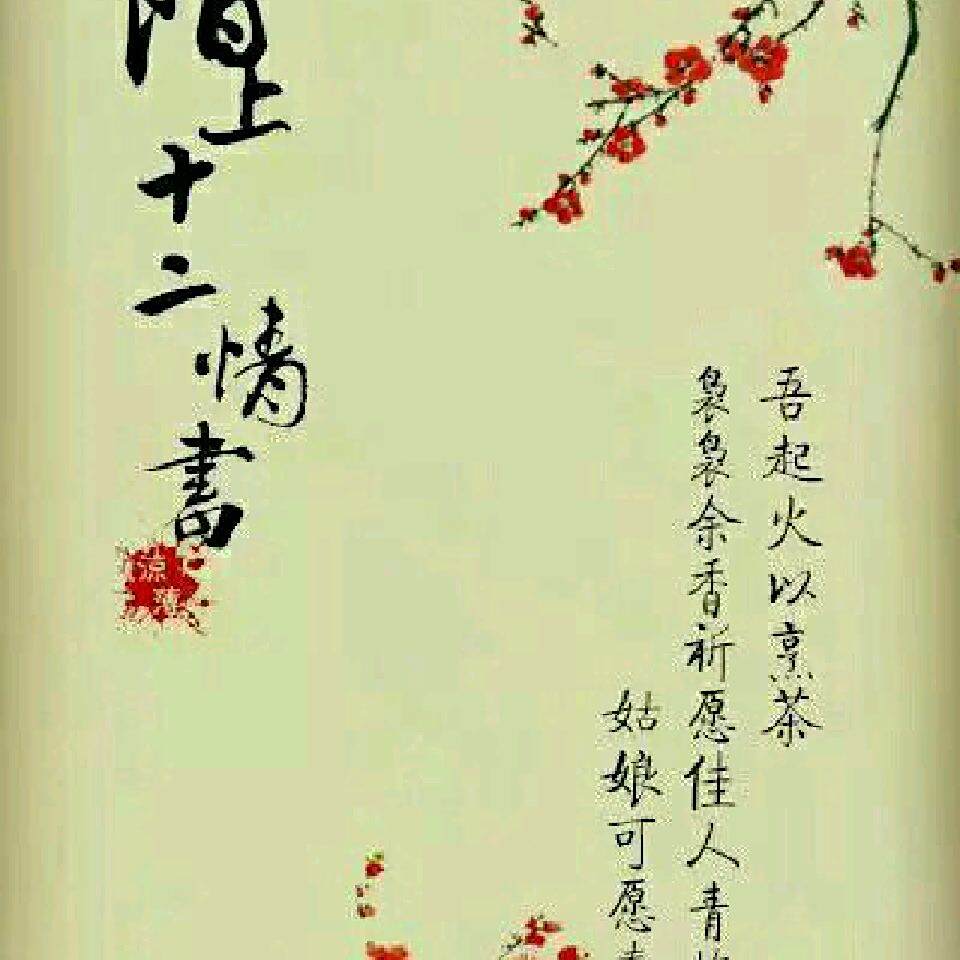 吾起火以烹茶
袅袅余香祈愿佳人青
姑娘可愿
陌上十二情書